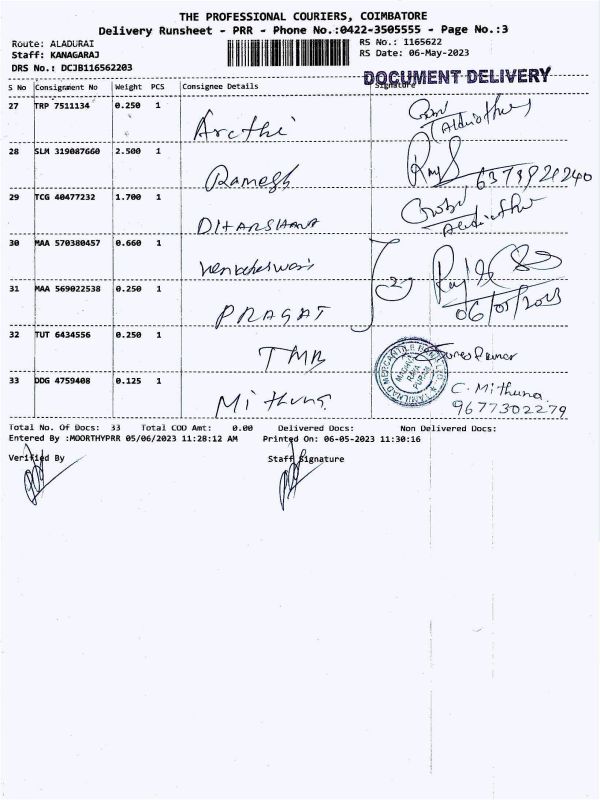 THE PROFESSIONAL COURIERS, COIMBATORE
Delivery Runsheet - PRR - Phone No.:0422-3505555 - Page No.:3
Route: ALADURAI
RS No.: 1165622
Staff: KANAGARAJ
RS Date: 06-May-2023
DRS No.: DCJB116562203
DOCUMENT DELIVERY
S No Consignment No Weight PCS Consignee Details Signature
27 TRP 7511134 0.250 1 Arethi
28 SLM 319087660 2.500 1 Ramesh 6379920240
29 TCG 40477232 1.700 1 DHARSHANA
30 MAA 570380457 0.660 1
31 MAA 569022538 0.250 1 PRAGAT 06/05/2023
32 TUT 6434556 0.250 1 TMB
33 DDG 4759408 0.125 1 Mithuna C. Mithuna
9677302279
Total No. Of Docs: 33 Total COD Amt: 0.00 Delivered Docs: Non Delivered Docs:
Entered By :MOORTHYPRR 05/06/2023 11:28:12 AM Printed On: 06-05-2023 11:30:16
Verified By Staff Signature